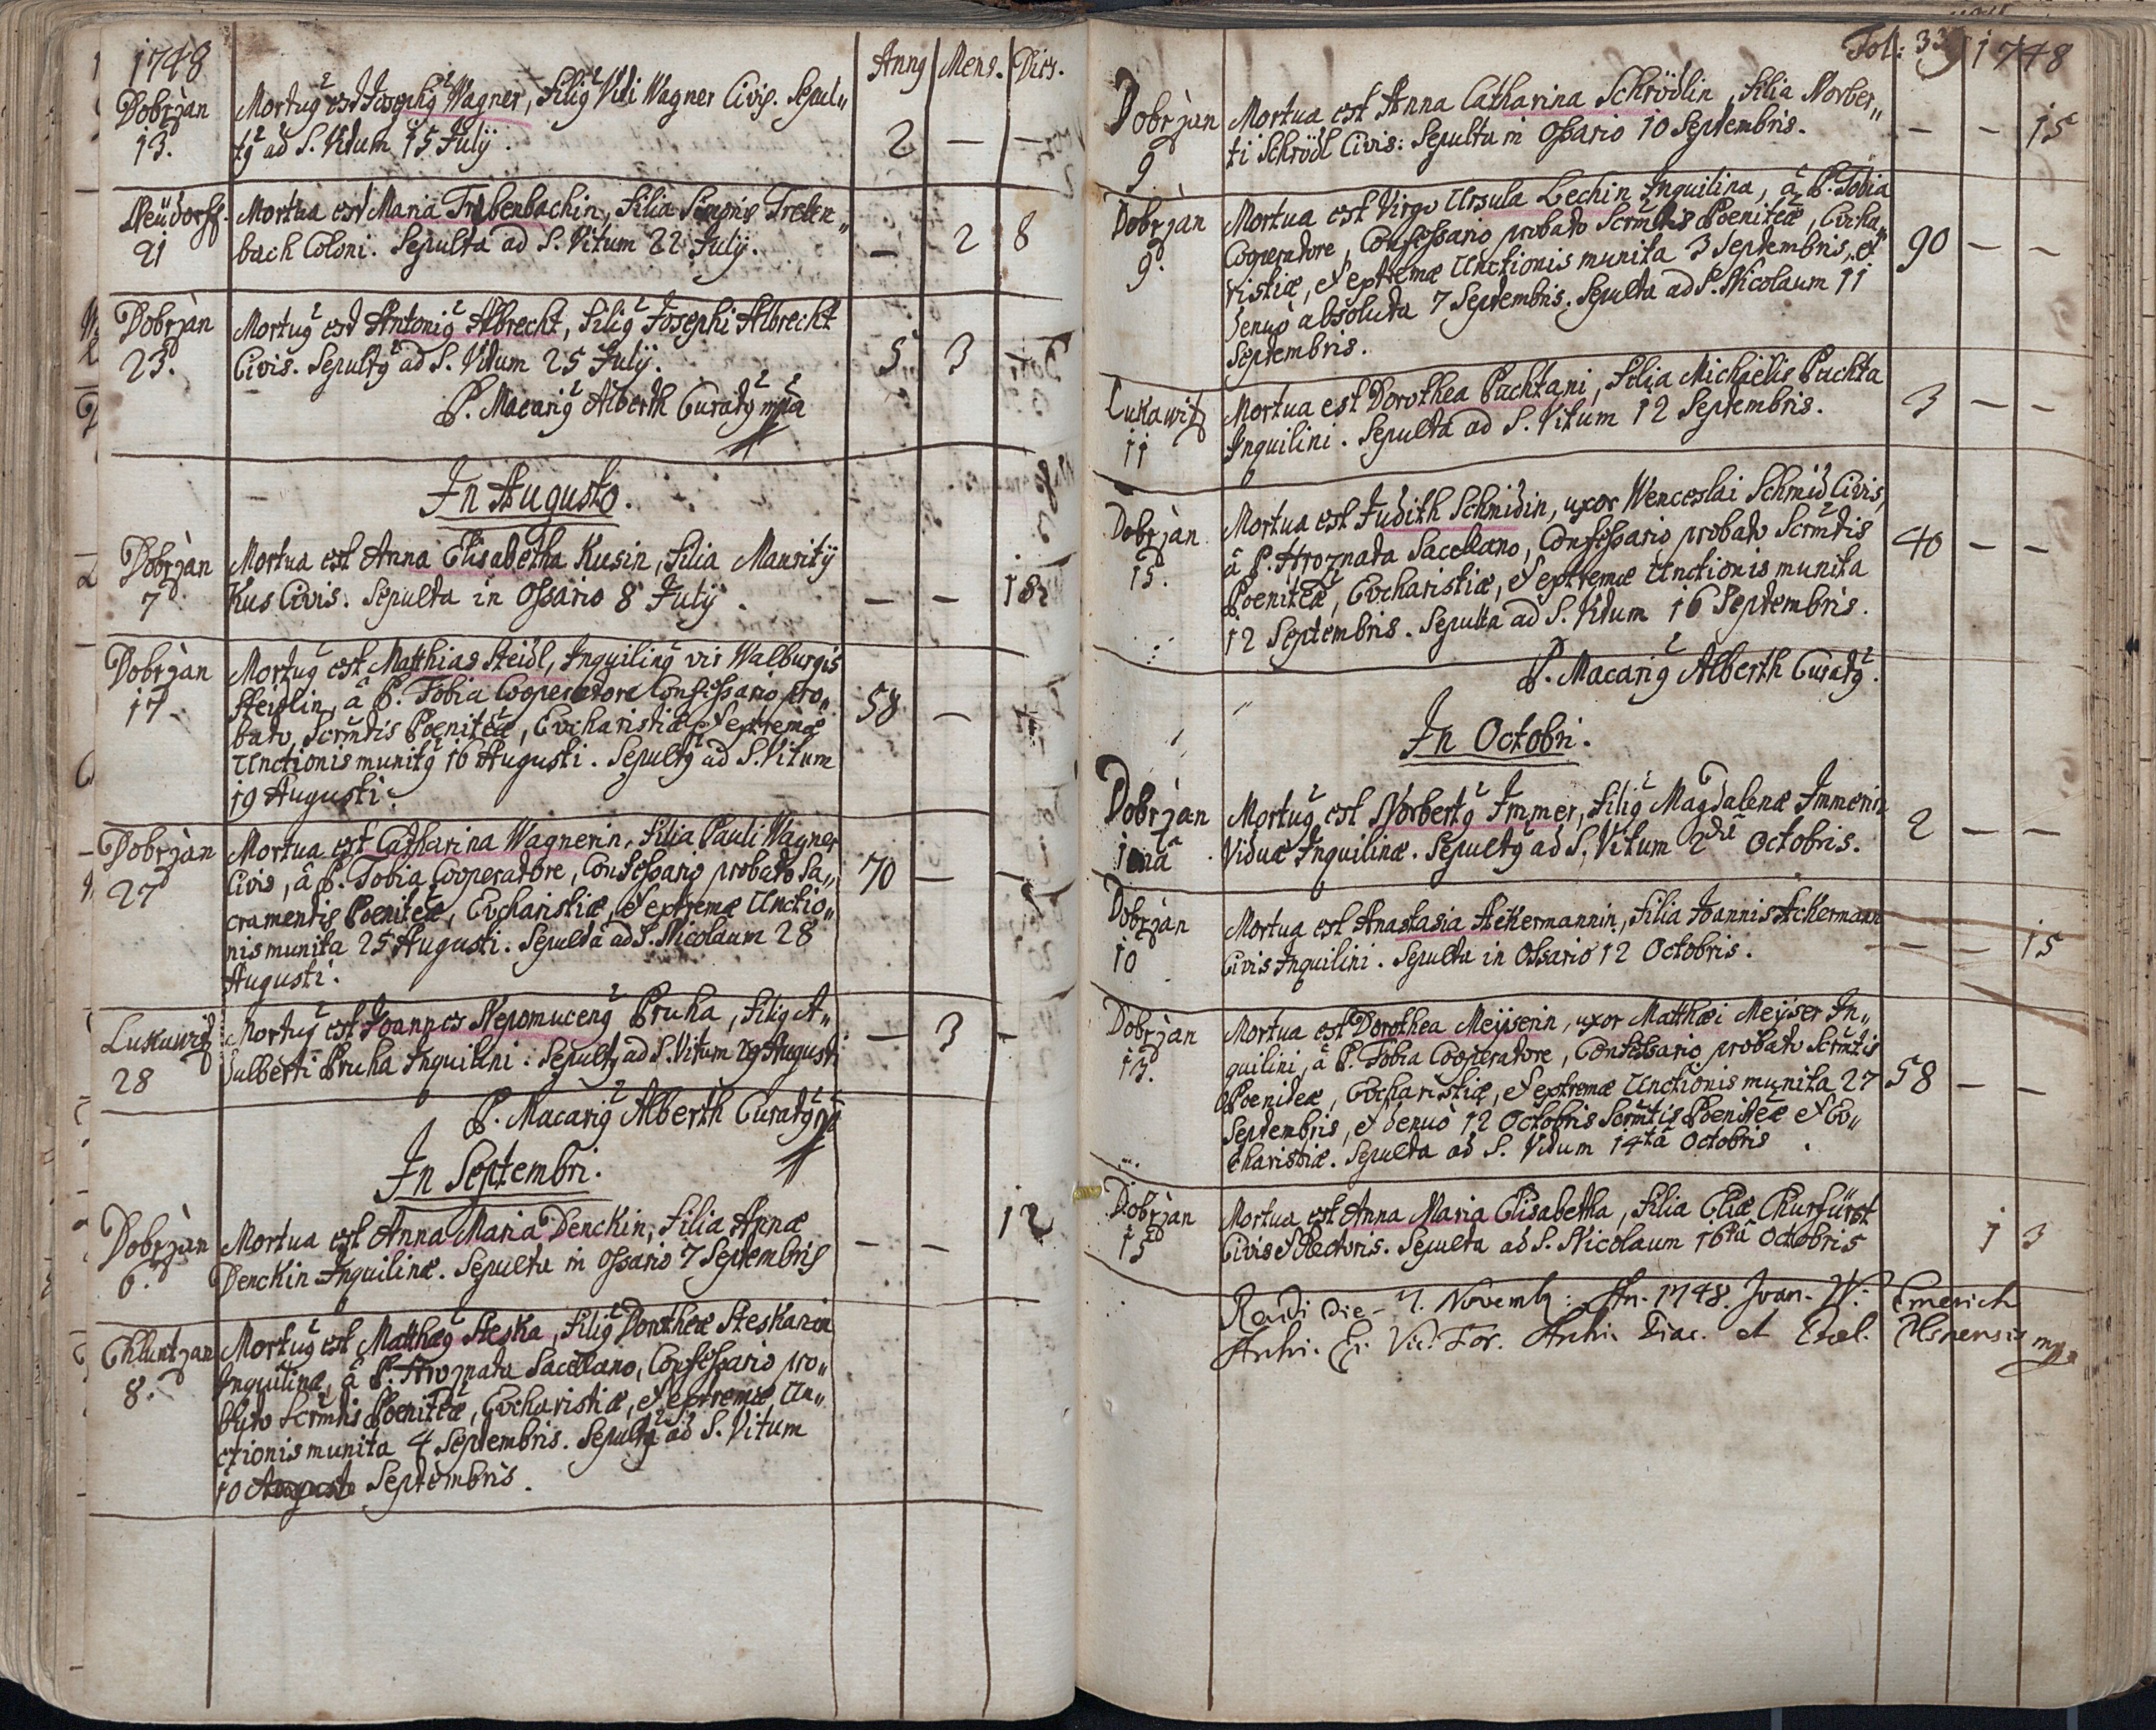 1748
Annꝯ Mens. Dies.
Dobrżan
13.
Mortuꝯ est Josephꝯ Wagner, Filiꝯ Viti Wagner Civis. Sepul„
tꝯ ad S. Vitum 15 Julij.
2 — —
Neüdorff.
21
Mortua est Maria Trebenbachin, Filia Simonis Treben„
bach Coloni. Sepulta ad S. Vitum 22 Julij.
— 2 8
Dobrżan
23.
Mortuꝯ est Antoniꝯ Albrecht, Filiꝯ Josephi Albrecht
Civis. Sepultꝯ ad S. Vitum 25 Julij.
5 3 —
P. Macariꝯ Alberth Curatꝯ mpa
In Augusto.
Dobrżan
7
Mortua est Anna Elisabetha Kusin, Filia Mauritij
Kus Civis. Sepulta in Ossario 8 Julij.
— — 18
Dobrżan
17.
Mortuꝯ est Matthias Steidl, Inquilinꝯ vir Walburgis
Steidlin, à P. Tobia Cooperatore Confessario pro„
bato, Scrmtis Poenitēæ, Evcharistiæ et extremæ
Unctionis munitꝯ 16 Augusti. Sepultꝯ ad S. Vitum
19 Augusti.
58 —
Dobrżan
27
Mortua est Catharina Wagnerin, Filia Pauli Wagner
Civis, à P. Tobia Cooperatore, Confessario probato Sa„
cramentis Poenitēæ, Evcharistiæ, et extremæ Unctio„
nis munita 25 Augusti. Sepulta ad S. Nicolaum 28
Augusti.
70 — —
Lukawitz
28
Mortuꝯ est Joannes Nepomucenꝯ Pruha, Filiꝯ A„
dalberti Pruha Inquilini. Sepultꝯ ad S. Vitum 29 Augusti
— 3 —
P. Macariꝯ Alberth Curatꝯ mp
In Septembri.
Dobrżan
6.
Mortua est Anna Maria Denckin, Filia Annæ
Denckin Inquilinæ. Sepulta in Ossario 7 Septembris
— — 12
Chluntżan
8.
Mortuꝯ est Matthæꝯ Steska, Filiꝯ Dorotheæ Steskanin
Inquilinæ, à P. Hroznata Sacellano, Confessario pro„
bato Scrmtis Poenitēæ, Evcharistiæ, et extremæ Un„
ctionis munita 4 Septembris. Sepultꝯ ad S. Vitum
10 Septembris.
Fol: 339 1748
Dobrżan
9
Mortua est Anna Catharina Schrödlin, Filia Norber„
ti Schrödl Civis: Sepulta in Ossario 10 Septembris.
— — 15
Dobrżan
9.
Mortua est Virgo Ursula Lechin Inquilina, à P. Tobia
Cooperatore, Confessario probato Scrmtis Poenitēæ, Evcha„
ristiæ, et extremæ Unctionis munita 3 Septembris, et
denuò absoluta 7 Septembris. Sepulta ad S. Nicolaum 11
Septembris.
90 — —
Lukawitz
11
Mortua est Dorothea Puchtani, Filia Michaelis Puchta
Inquilini. Sepulta ad S. Vitum 12 Septembris.
3 — —
Dobrżan
15.
Mortua est Judith Schmidin, uxor Wenceslai Schmid Civis,
à P. Hroznata Sacellano, Confessario probato Scrmtis
Poenitēæ, Evcharistiæ, et extremæ Unctionis munita
12 Septembris. Sepulta ad S. Vitum 16 Septembris.
40 — —
P. Macariꝯ Alberth Curatꝯ.
In Octobri.
Dobrżan
1mâ
Mortuꝯ est Norbertꝯ Immer, Filiꝯ Magdalenæ Immerin
Viduæ Inquilinæ. Sepultꝯ ad S. Vitum 2dâ Octobris.
2 — —
Dobrżan
10
Mortua est Anastasia Ackermannin, Filia Joannis Ackermann
Civis Inquilini. Sepulta in Ossario 12 Octobris.
— — 15
Dobrżan
13.
Mortua est Dorothea Meijserin, uxor Matthæi Meijser In„
quilini, à P. Tobia Cooperatore, Confessario probato Scrmtis
Poeniteæ, Evcharistiæ, et extremæ Unctionis munita 27
Septembris, et denuò 12 Octobris Scrmtis Poenitēæ et Ev„
charistiæ. Sepulta ad S. Vitum 14tâ Octobris.
58 — —
Dobrżan
15
Mortua est Anna Maria Elisabetha, Filia Eliæ Churfürst
Civis et Rectoris. Sepulta ad S. Nicolaum 16tâ Octobris
1 3
Die 7. Novemb: An. 1748. Joan. W. Emerich
Vic. For. Archi Diac. et Plsnensis mpa